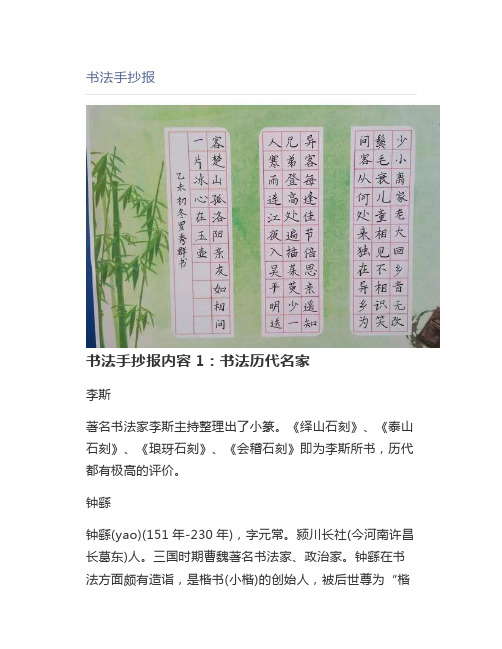 书法手抄报
少小离家老大回乡音无改
鬓毛衰儿童相见不相识笑
问客从何处来独在异乡为
异客每逢佳节倍思亲遥知
兄弟登高处遍插茱萸少一
人寒雨连江夜入吴平明送
客楚山孤洛阳亲友如相问
一片冰心在玉壶
乙未初冬罗秀群书
书法手抄报内容1：书法历代名家
李斯
著名书法家李斯主持整理出了小篆。《绎山石刻》、《泰山
石刻》、《琅玡石刻》、《会稽石刻》即为李斯所书，历代
都有极高的评价。
钟繇
钟繇(yao)(151年-230年)，字元常。颍川长社(今河南许昌
长葛东)人。三国时期曹魏著名书法家、政治家。钟繇在书
法方面颇有造诣，是楷书(小楷)的创始人，被后世尊为“楷